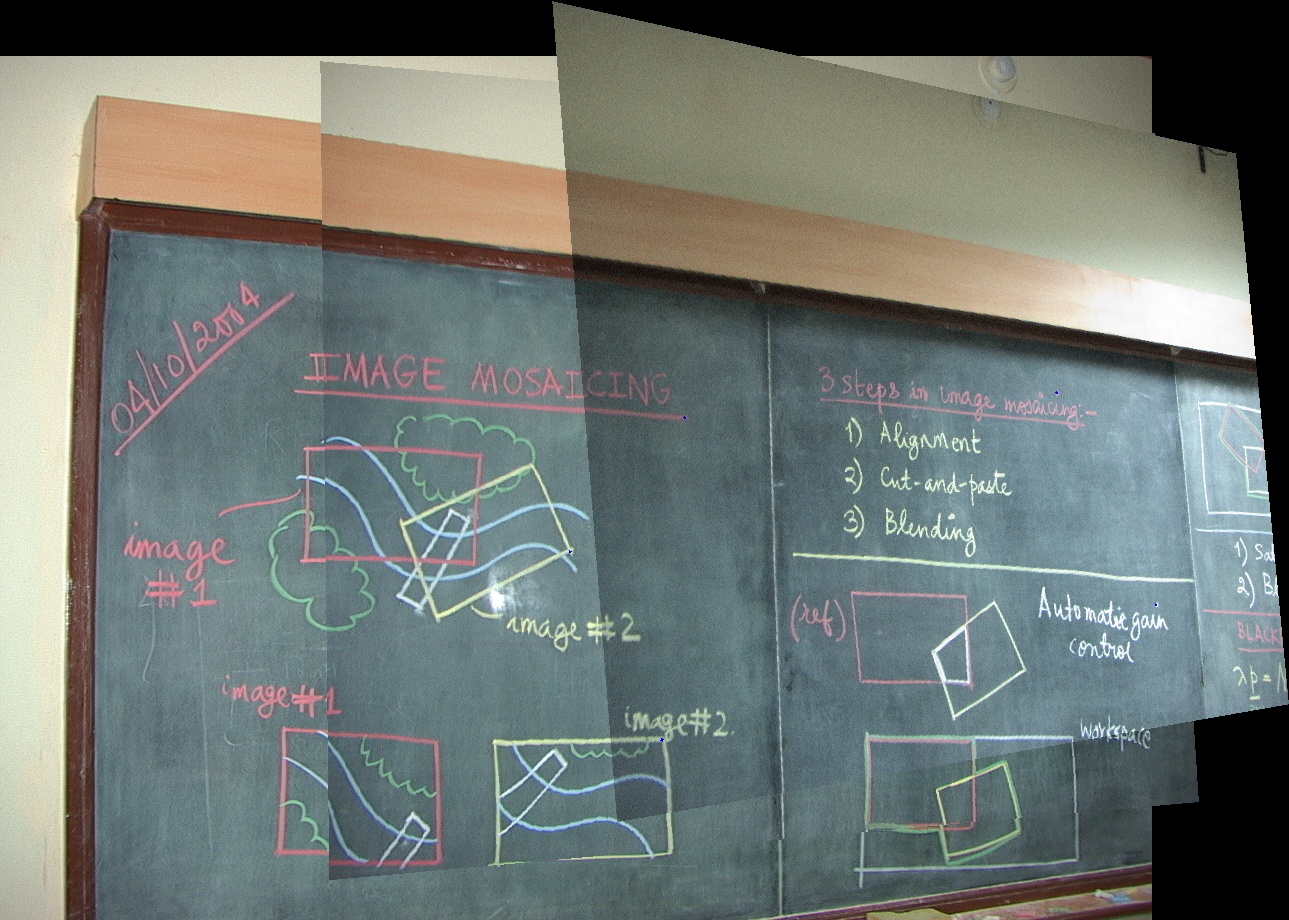 04/10/2004
IMAGE MOSAICING
image
#1
image #2
image #1
image #2.
3 steps in image mosaicing:-
1) Alignment
2) Cut-and-paste
3) Blending
(ref)
Automatic gain
control
workspace
1)
2)
λp =